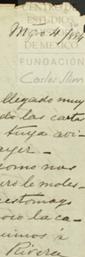 CENTRO DE
ESTUDIOS
DE MEXICO
FUNDACIÓN
Carlos Slim
llegado muy
do las carta
tuya avi-
ayer.—
como nos
ero le moles-
estomago
oco la ca-
uimos á
Rivera